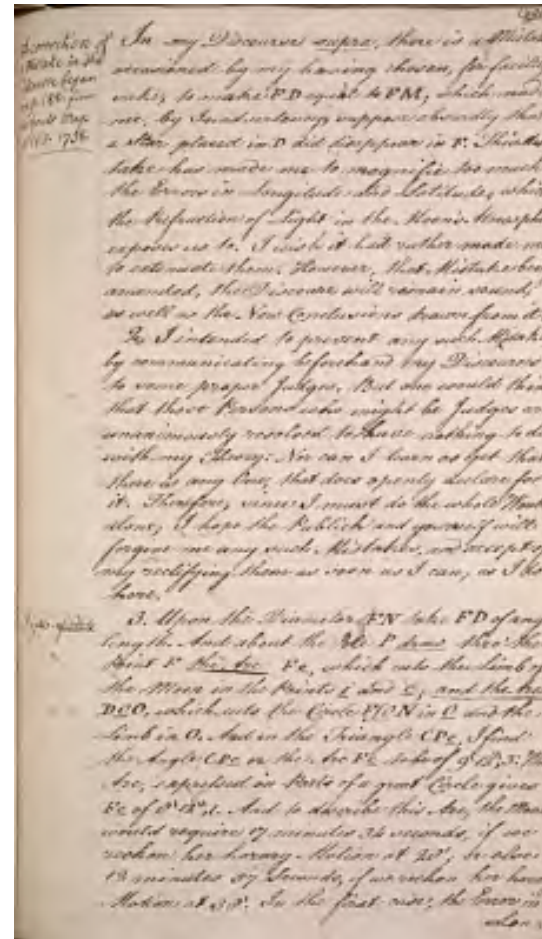 In my Discourse supra, there is a Mistake
occasioned by my having chosen, for facility
sake, to make FD equal to FM, which made
me, by Inadvertency, suppose absurdly that
a Star placed in D did disappear in F. This Mis
take has made me to magnifie too much
the Errors in Longitude and Latitude, which
the Refraction of Light in the Moon's Atmosphe
exposes us to. I wish it had rather made me
to extenuate them. However, that Mistake being
amended, the Discourse will remain sound,
as well as the New Conclusions drawn from it.
2. I intended to prevent any such Mistake
by communicating beforehand my Discourses
to some proper Judges. But one would think
that those Persons who might be Judges are
unanimously resolved to have nothing to do
with my Theory: Nor can I learn as yet that
there is any One, that does openly declare for
it. Therefore, since I must do the whole Work
alone, I hope the Publick and yourself will
forgive me any such Mistakes, and accept of
my rectifying them as soon as I can, as I do
here.
3. Upon the Diameter FN take FD of any
length. And about the Pole P draw thro' the
Point F the Arc Fc, which cuts the Limb of
the Moon in the Points and c, and the Arc
DCO, which cuts the Circle in C and the
Limb in O. And in the Triangle CPc, I find
the Angle CPc or the Arc Fc to be of
Arc, expressed in Parts of a great Circle gives
Fc of And to describe this Arc, the Moon
would require 17 minutes 34 seconds, if we
reckon her horary Motion at or else
13 minutes 57 Seconds, if we reckon her horary
Motion at 38'. In the first case, the Error in